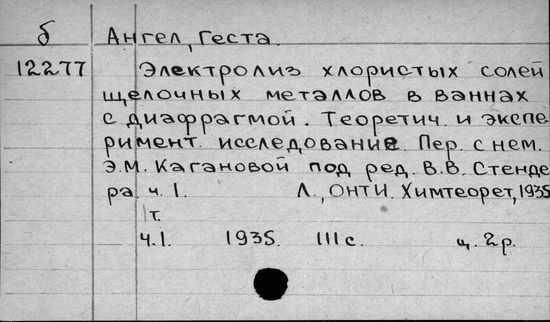 б Ангел, Геста.
12277 Электролиз хлористых солей
щелочных металлов в ваннах
с диафрагмой. Теоретич. и экспе
римент. исследование. Пер. с нем.
Э.М. Кагановой под ред. В.В. Стенде
ра. ч. 1. Л., ОНТИ. Химтеорет, 1935
1т.
ч.1. 1935. 111 с. ц. 2р.